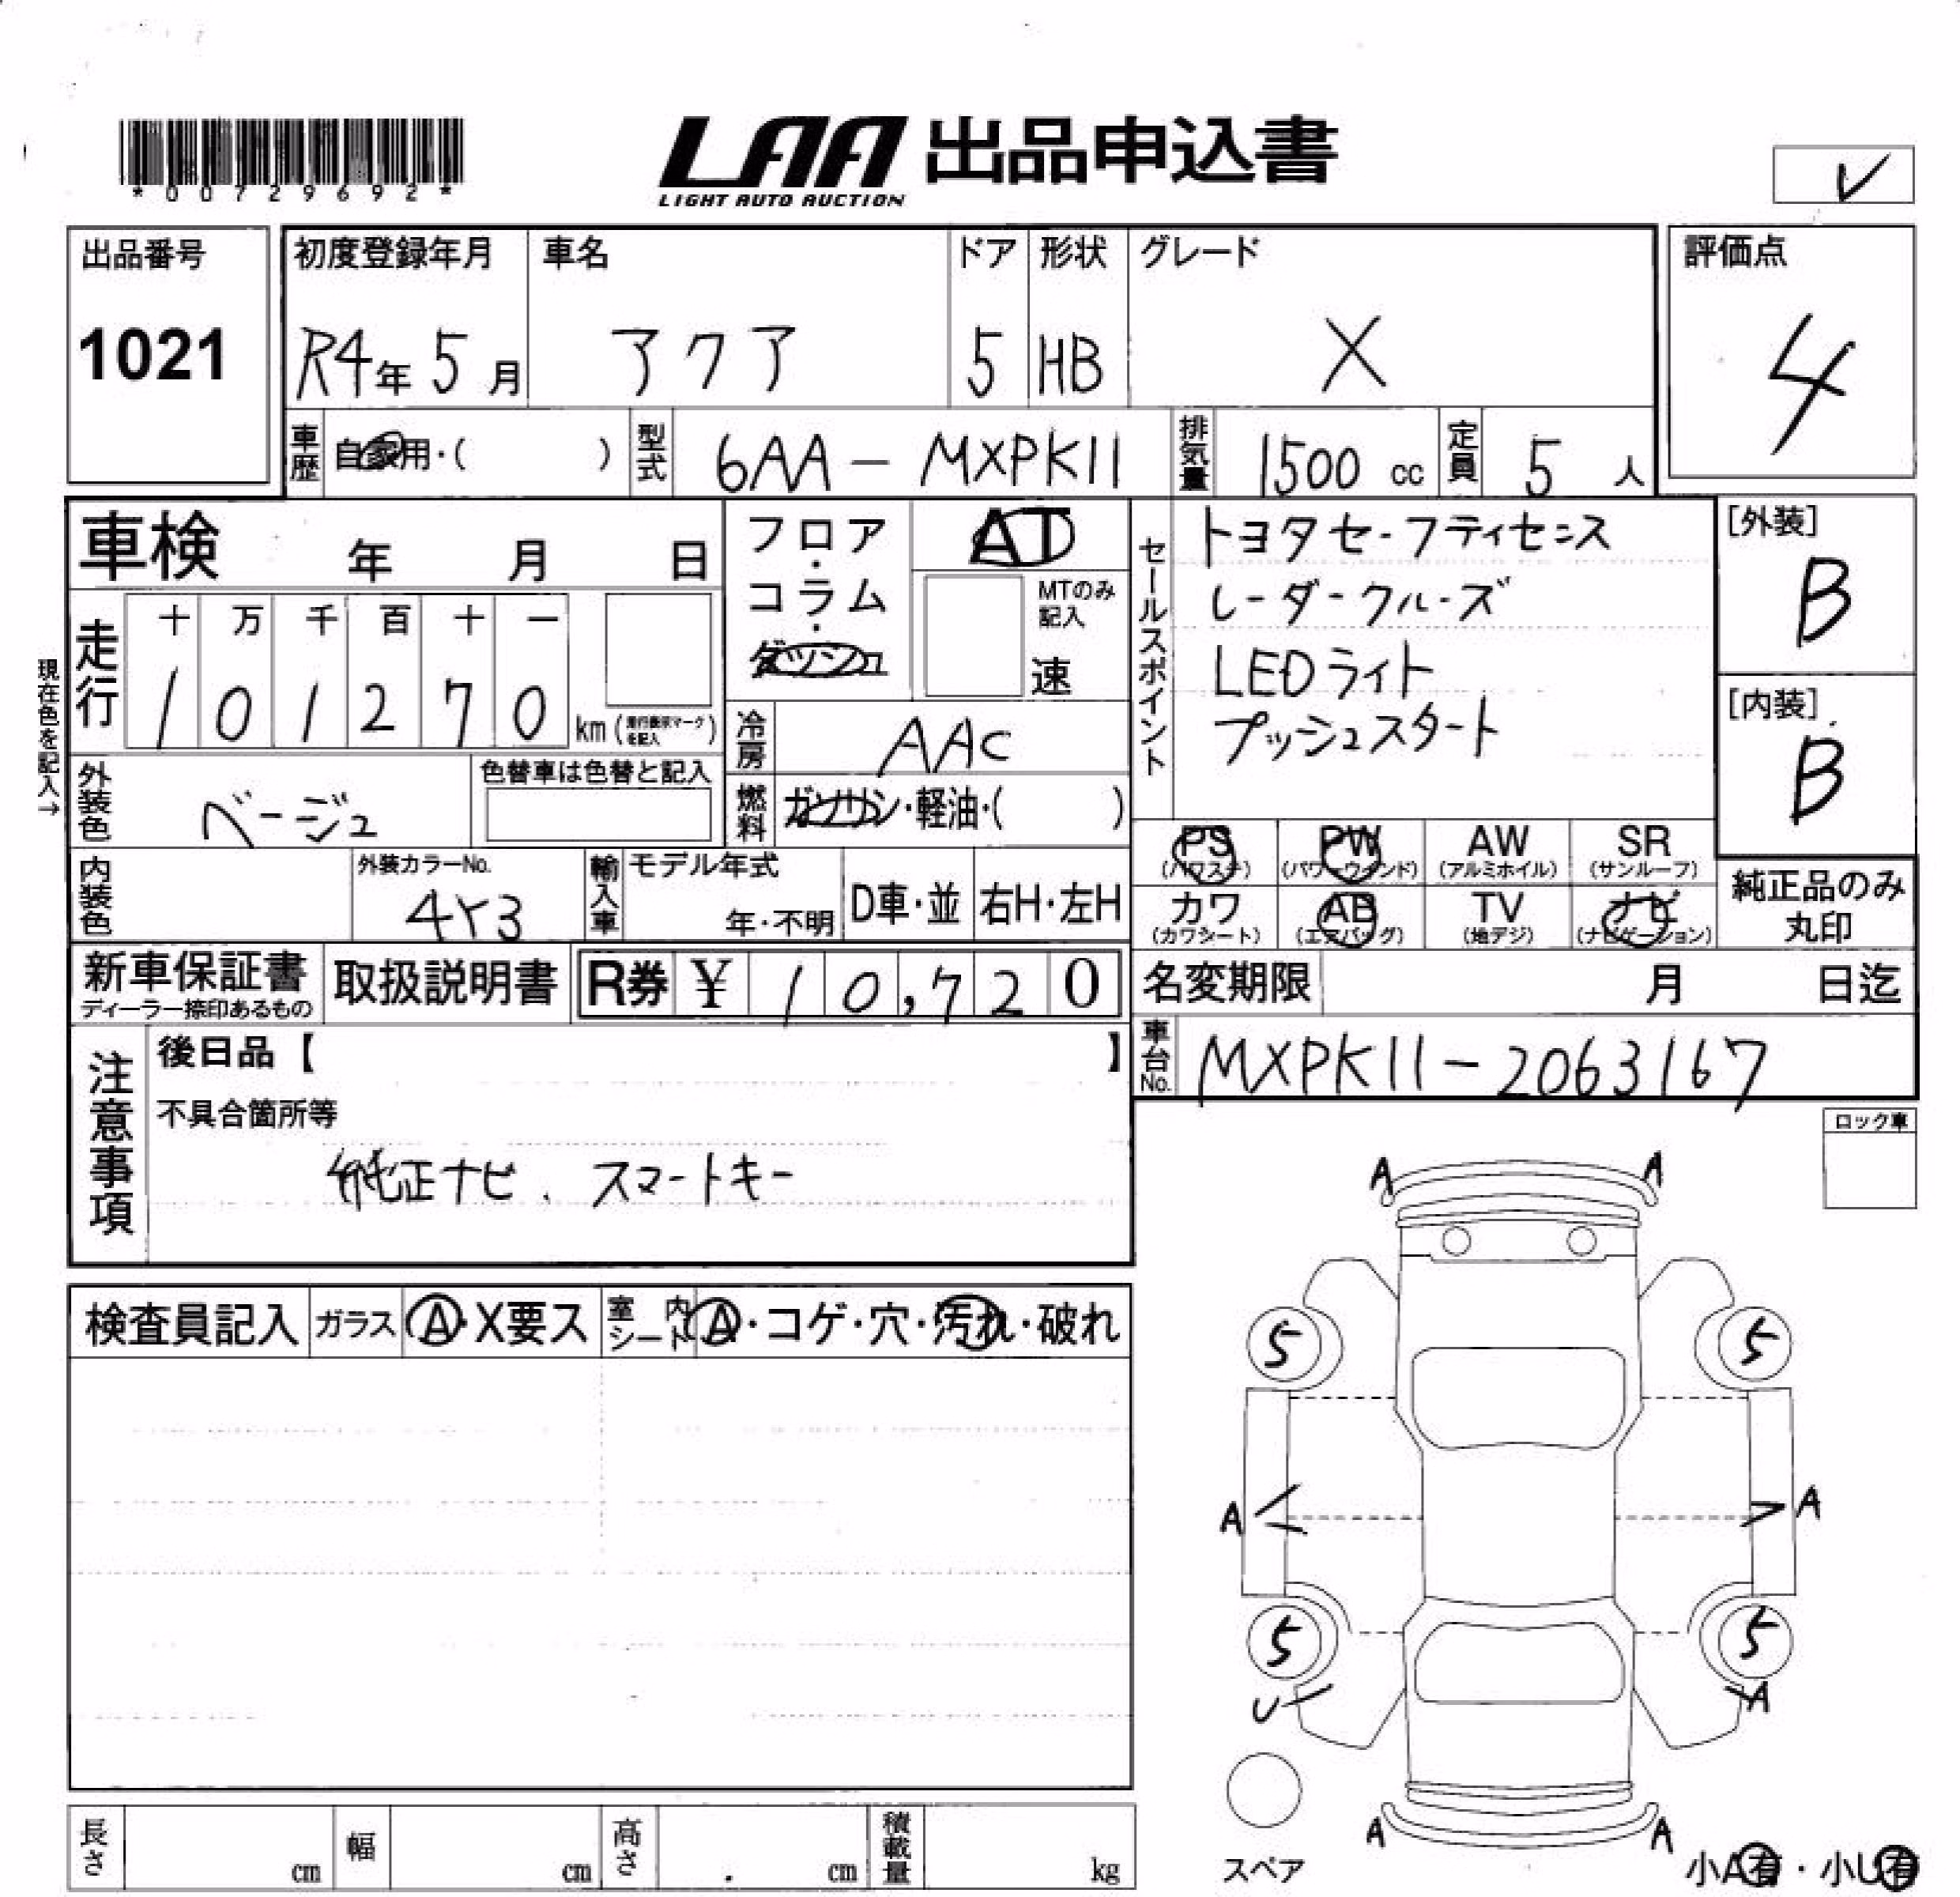 *00729692*
LAA 出品申込書
LIGHT AUTO AUCTION
レ
出品番号
1021
初度登録年月
R4年 5月
車名
アクア
ドア
5
形状
HB
グレード
X
評価点
4
車歴 自家用・( )
型式 6AA-MXPK11
排気量 1500 cc
定員 5 人
車検 年 月 日
フロア・コラム・ダッシュ
AT
MTのみ記入
速
セールスポイント
トヨタセーフティセンス
レーダークルーズ
LEDライト
プッシュスタート
[外装]
B
[内装]
B
現在色を記入→
走行
十 万 千 百 十 一
1 0 1 2 7 0 km
冷房 AAC
外装色 ベージュ
色替車は色替と記入
燃料 ガソリン・軽油・( )
PS (パワステ)
PW (パワーウインド)
AW (アルミホイル)
SR (サンルーフ)
カワ (カワシート)
AB (エアバッグ)
TV (地デジ)
ナビ (ナビゲーション)
純正品のみ丸印
内装色
外装カラーNo.
4Y3
輸入車
モデル年式
年・不明
D車・並
右H・左H
新車保証書
ディーラー捺印あるもの
取扱説明書
R券 ¥ 10,720
名変期限 月 日迄
車台No. MXPK11-2063167
注意事項
後日品【 】
不具合箇所等
純正ナビ、スマートキー
ロック車
検査員記入
ガラス A・X要ス
室内シート A・コゲ・穴・汚れ・破れ
A A
5 5
A A
5 5
U A
A A
スペア
小A有・小U有
長さ cm
幅 cm
高さ . cm
積載量 kg